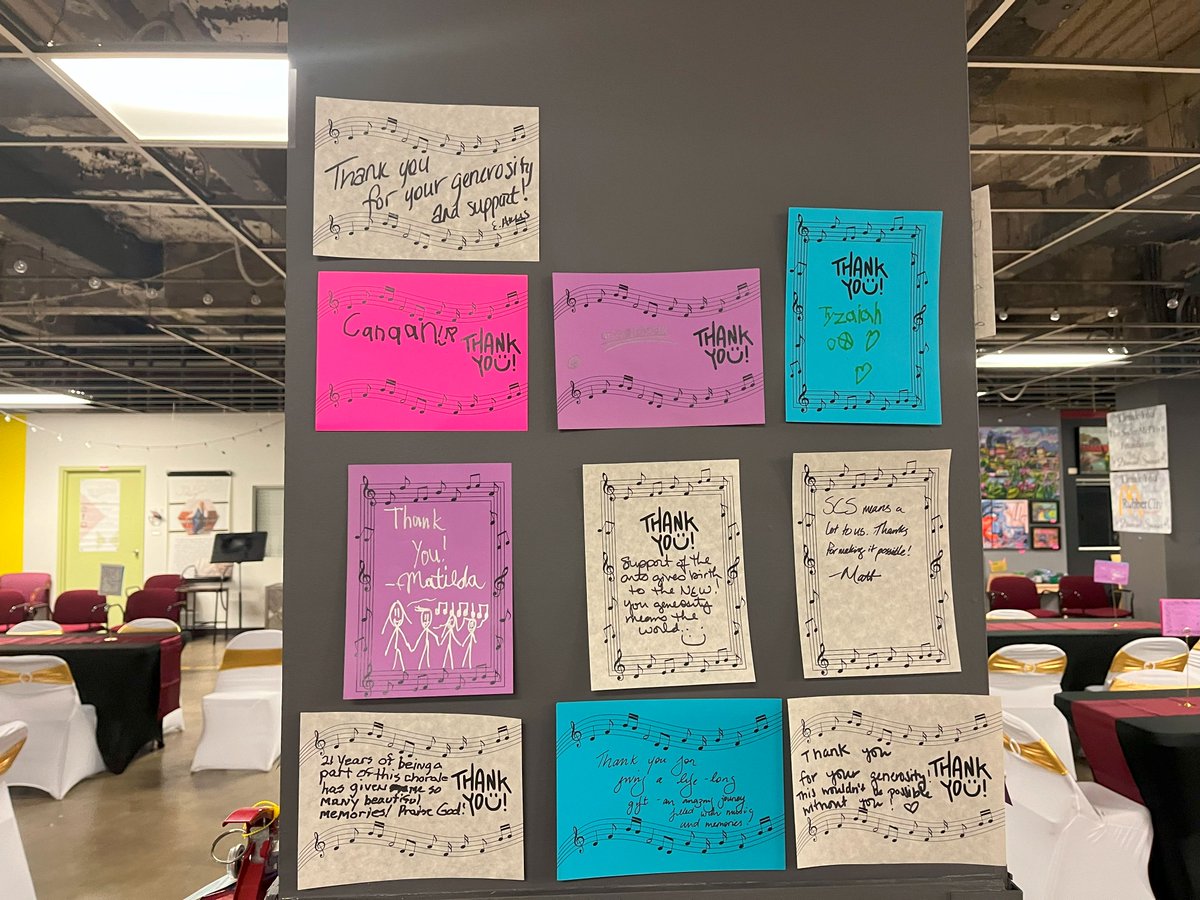 Thank you
for your generosity
and support!
THANK
YOU!
THANK
YOU!
THANK
YOU!
Tyzaiah
Thank
You!
-Matilda
THANK
YOU!
Support of the
arts gives birth
to the NEW!
you generosity
means the
world.
SCS means a
Lot to us. Thanks
for making it possible!
-Matt
21 Years of being a
part of this chorale
has given me so
many beautiful
memories! Praise God!
THANK
YOU!
Thank you for
giving a life-long
gift - an amazing journey
filled with
and memories
Thank you
for your generosity!
This wouldn't be possible
without you!
THANK
YOU!
Rubber City